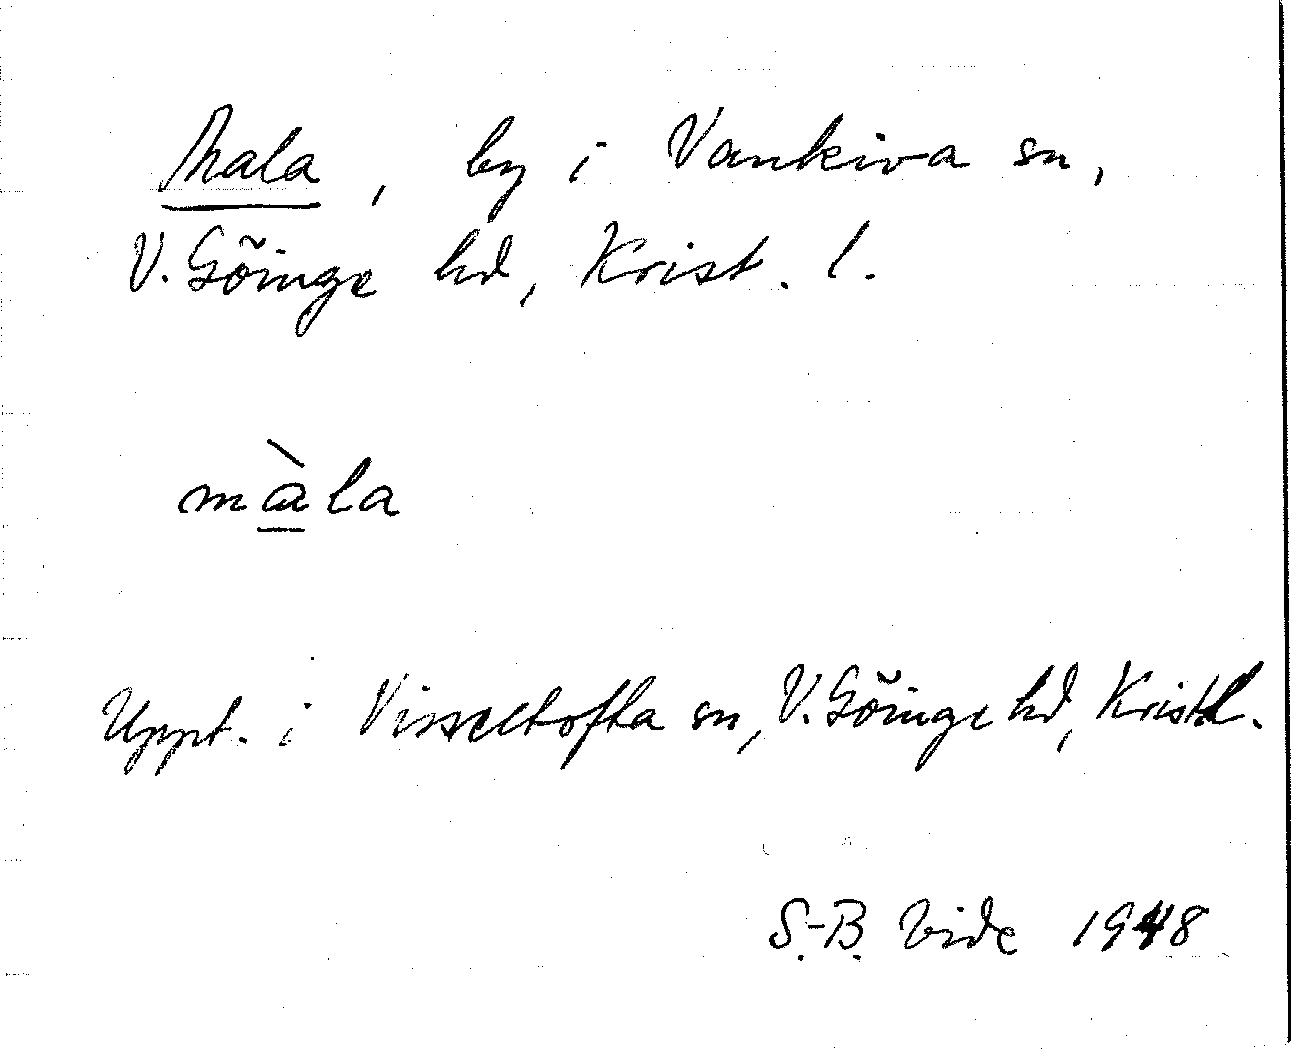 Mala, by i Vankiva sn,
V. Göinge hd, Krist. l.
màla
Uppt. i Visseltofta sn, V. Göinge hd, Krist l.
S.-B. Vide 1948